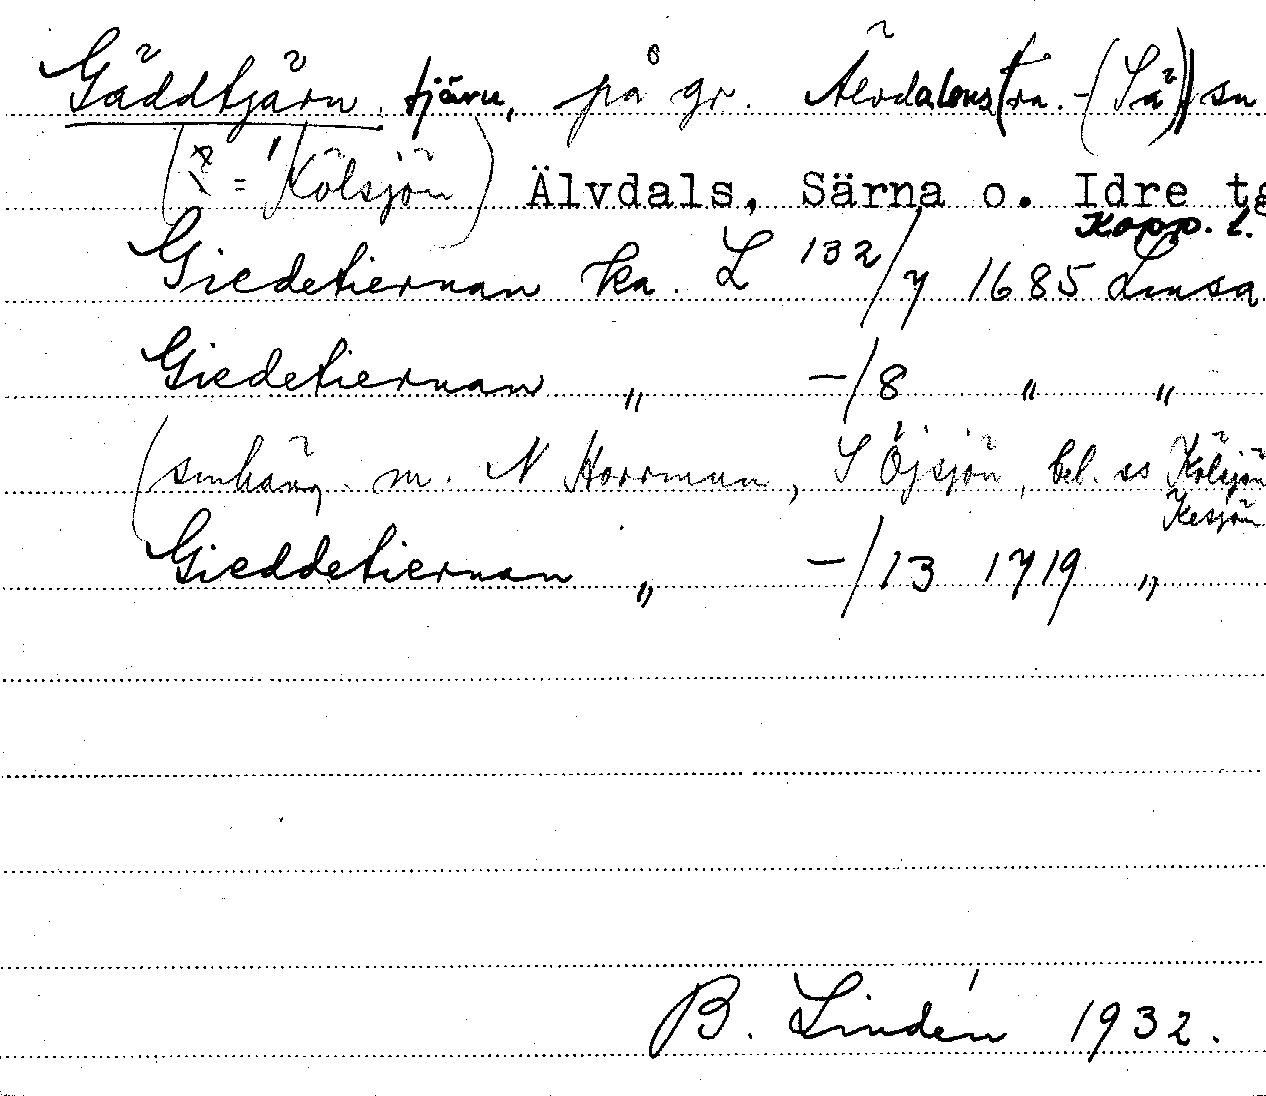 Gäddtjärn, tjärn, på gr. Älvdalens(Tra. - (Sä)) sn
(? = Kölsjön) Älvdals, Särna o. Idre
Kopp. l.
Giedetiernan ka. L 132/7 1685 Lmsa
Giedetiernan " -/8 " "
(smhäng m. N Horrmun, S Öjsjön, bel. ss Kölsjön
Kesjön
Gieddetiernan " -/13 1719 "
B. Lindén 1932.